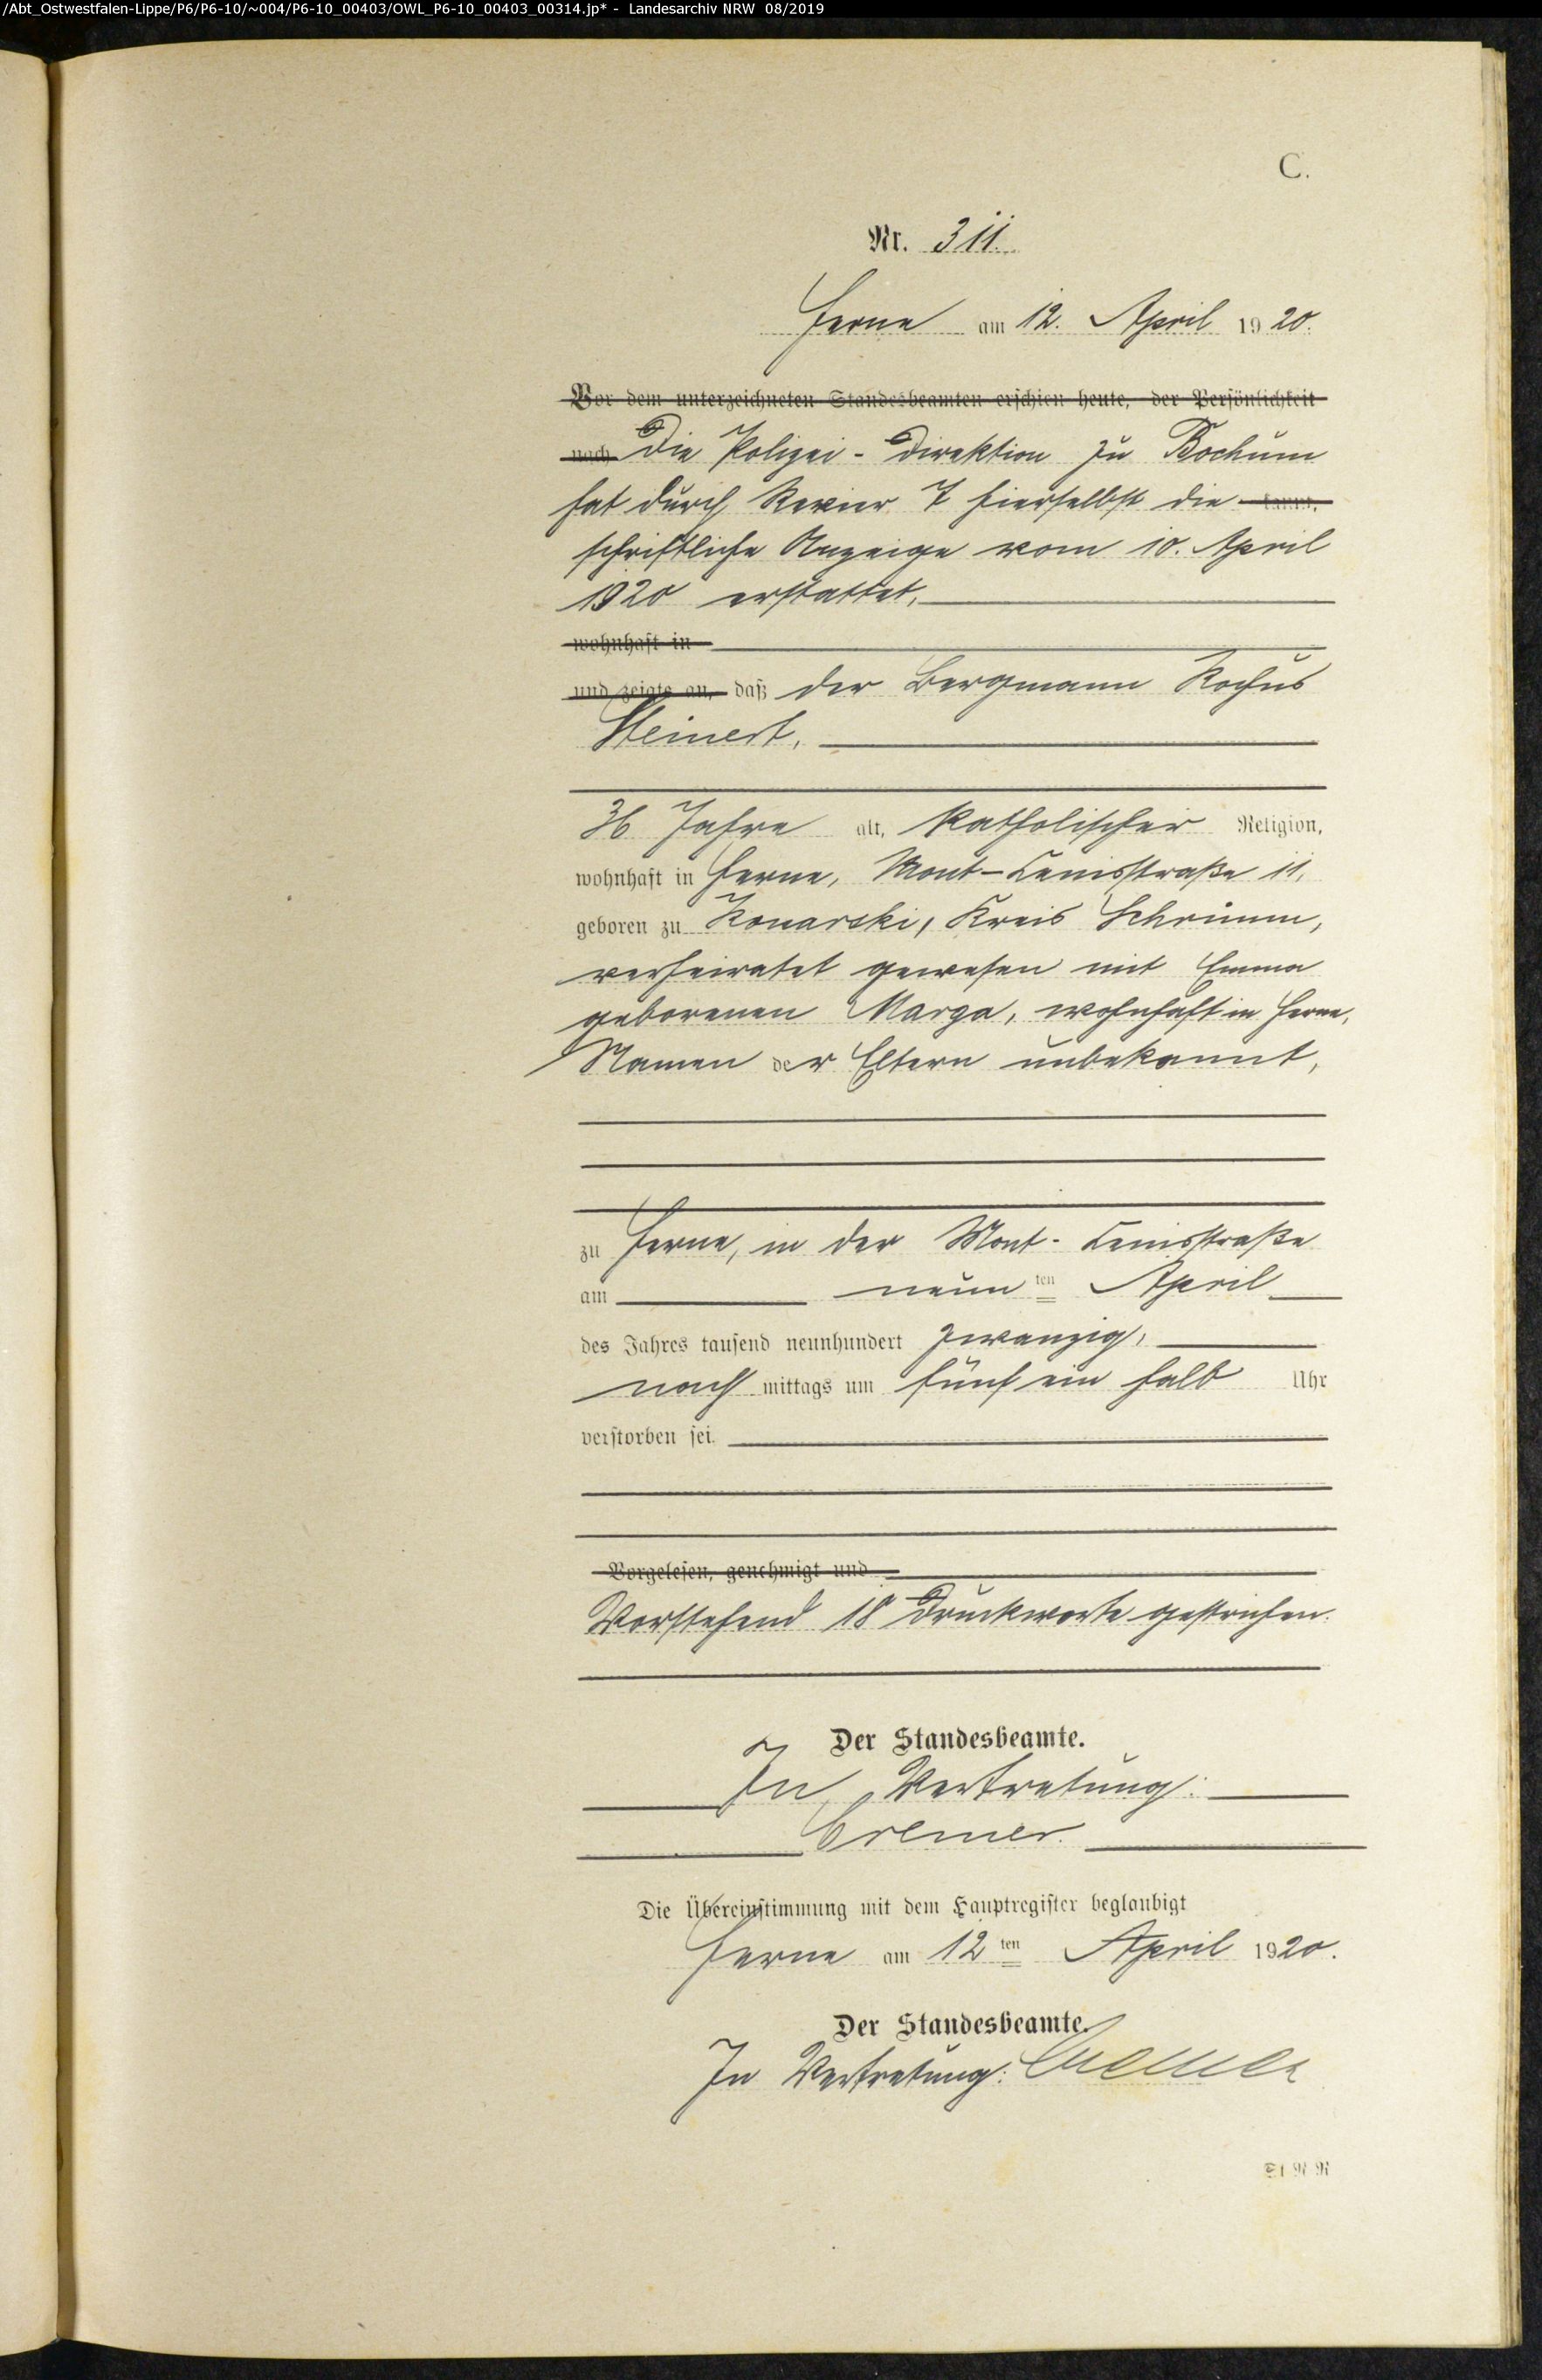 /Abt_Ostwestfalen-Lippe/P6/P6-10/~004/P6-10_00403/OWL_P6-10_00403_00314.jp* - Landesarchiv NRW 08/2019
C.
Nr. 311.
Herne am 12. April 1920.
Vor dem unterzeichneten Standesbeamten erschien heute, der Persönlichkeit
nach Die Polizei-Direktion zu Bochum
hat durch Revier 7 hierselbst die kannt,
schriftliche Anzeige vom 10. April
1920 erstattet,
wohnhaft in
und zeigte an, daß der Bergmann Rochus
Steinert,
36 Jahre alt, katholischer Religion,
wohnhaft in Herne, Mont-Cenisstraße 11,
geboren zu Konarski, Kreis Schrimm,
verheiratet gewesen mit Emma
geborenen Marga, wohnhaft in Herne,
Namen der Eltern unbekannt,
zu Herne, in der Mont-Cenisstraße
am neunten April
des Jahres tausend neunhundert zwanzig,
nachmittags um fünf ein halb Uhr
verstorben sei.
Vorgelesen, genehmigt und
Vorstehend 18 Druckworte gestrichen.
Der Standesbeamte.
In Vertretung:
Cremer.
Die Übereinstimmung mit dem Hauptregister beglaubigt
Herne am 12ten April 1920.
Der Standesbeamte.
In Vertretung: Cremer